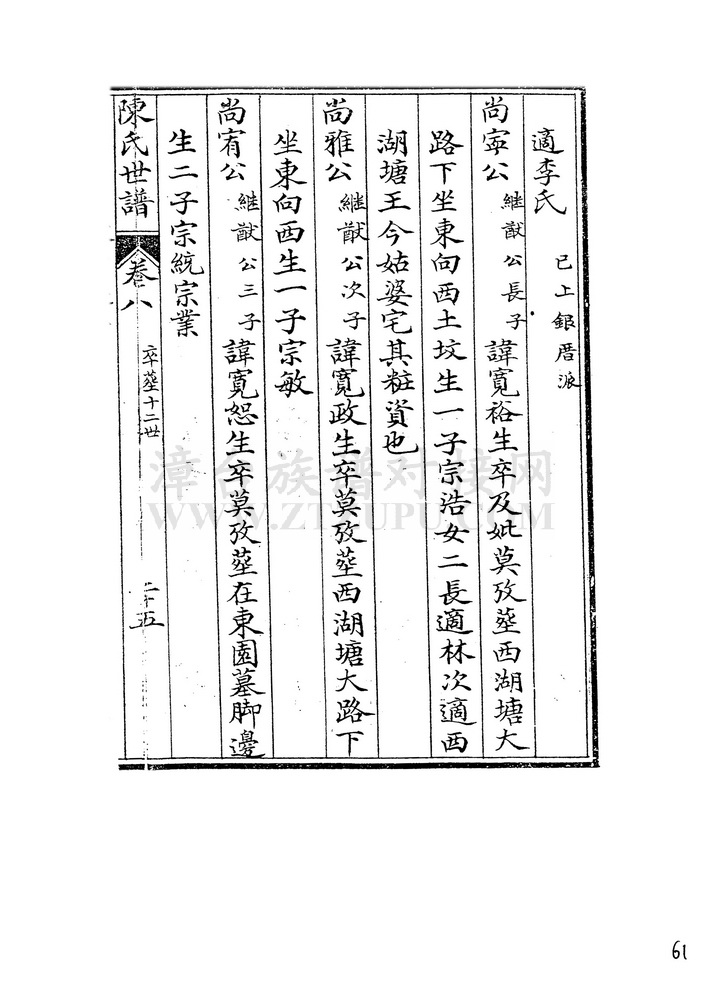 適李氏 已上銀厝派
尚寍公 継猷公長子 諱寬裕生卒及妣莫攷塟西湖塘大
路下坐東向西土坟生一子宗浩女二長適林次適西
湖塘王今姑婆宅其粧資也
尚雅公 継猷公次子 諱寬政生卒莫攷塟西湖塘大路下
坐東向西生一子宗敏
尚宥公 継猷公三子 諱寬恕生卒莫攷塟在東園墓脚邊
生二子宗統宗業
陳氏世譜 卷八 卒塟十二世 二十五
漳台族譜对接网
WWW.ZTZUPU.COM
61